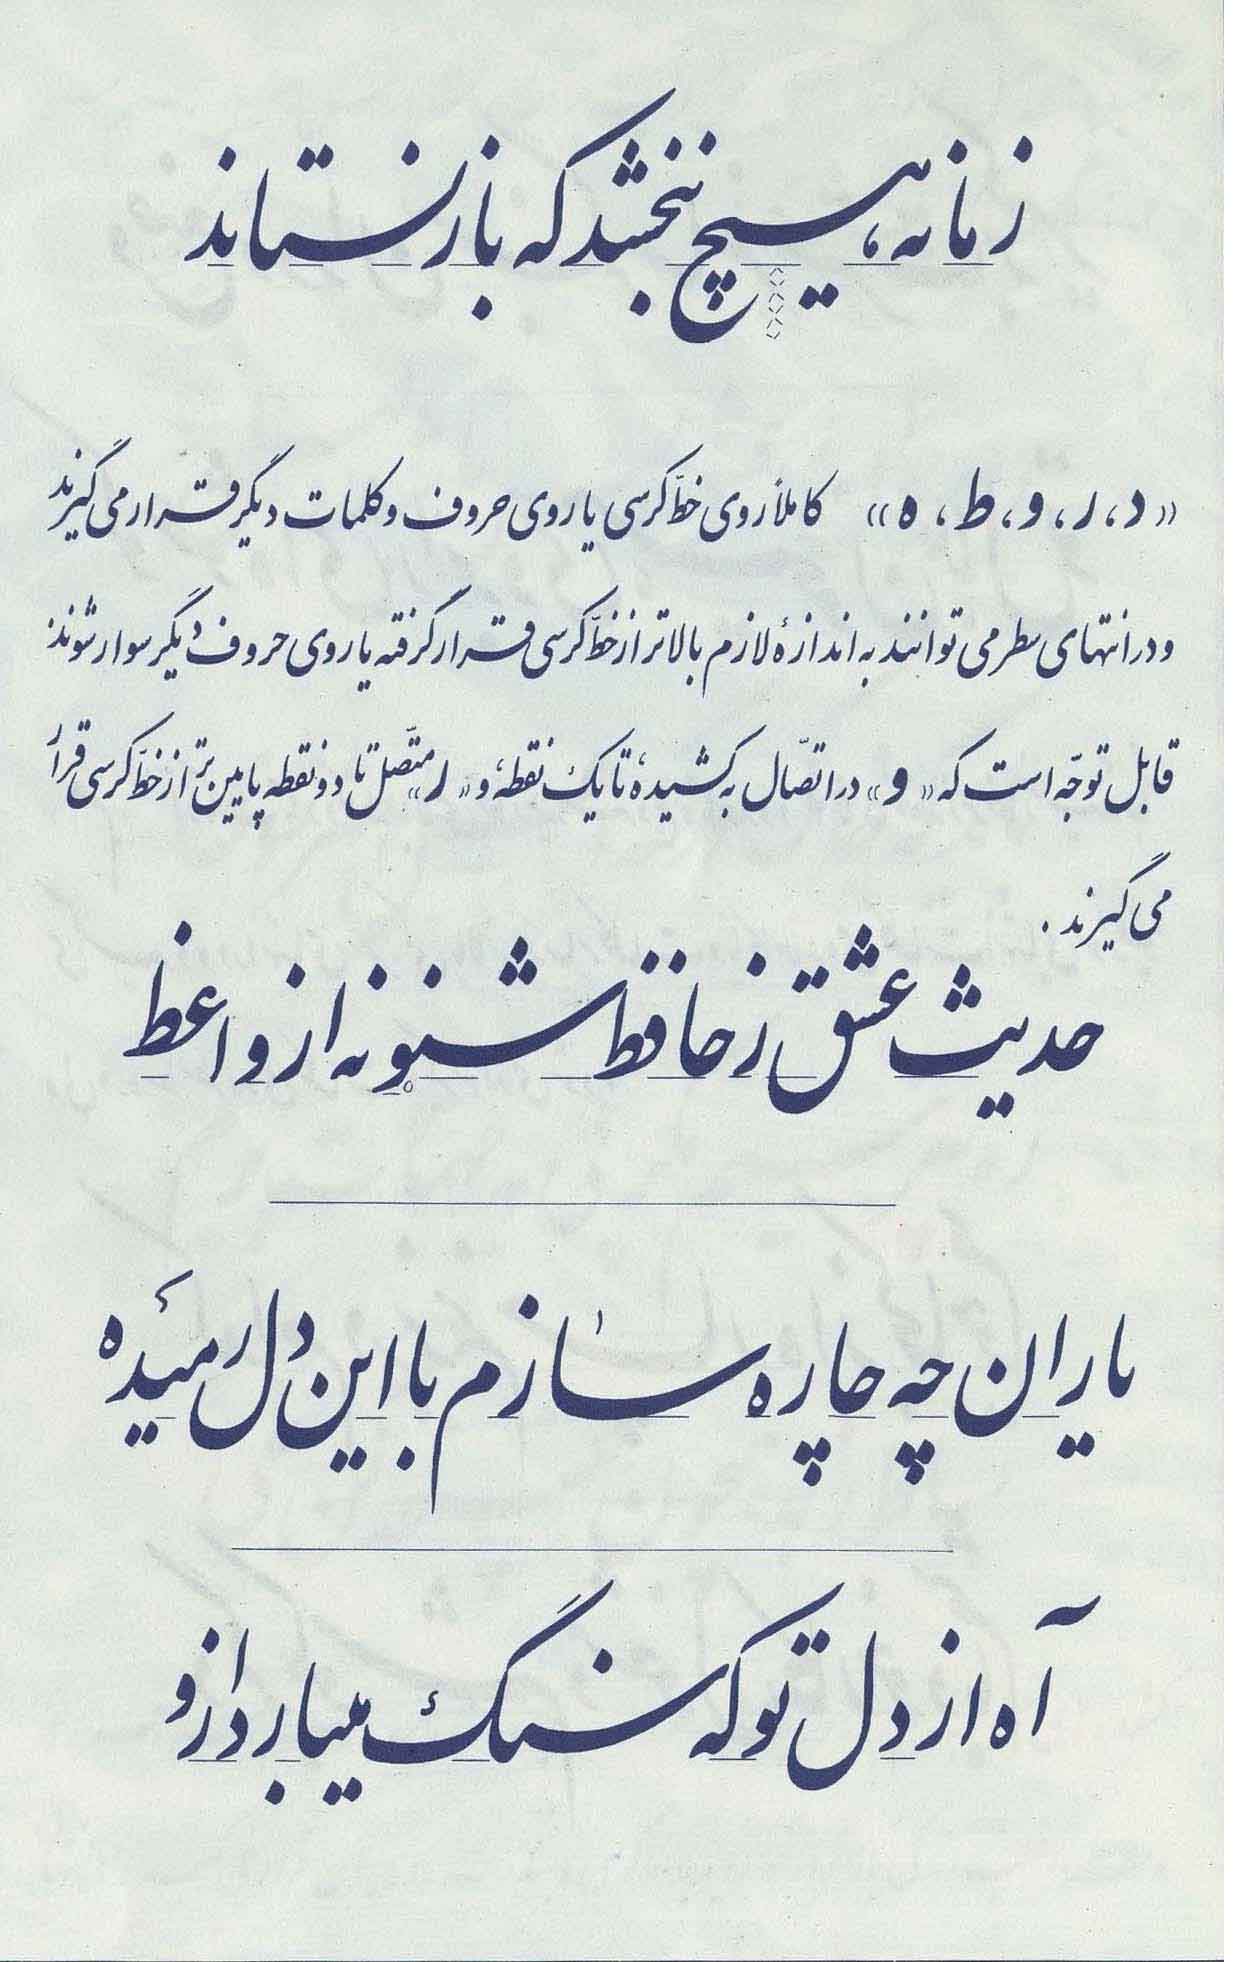 زمانه، هیچ نبخشد که باز نستاند
«د، ر، و، ط، ه» کاملاً روی خطّ کرسی یا روی حروف و کلمات دیگر قرار می گیرند
و در انتهای سطر می توانند به اندازهٔ لازم بالاتر از خطّ کرسی قرار گرفته یا روی حروف دیگر سوار شوند:
قابل توجّه است که «و» در اتصّال به کشیده، تا یک نقطه، و «ر» متّصل تا دو نقطه پایین تر از خطّ کرسی قرار
می گیرند.
حدیث عشق ز حافظ شنو نه از واعظ
یاران چه چاره سازم با این دل رمیده
آه از دل تو که سنگ میبارد ازو